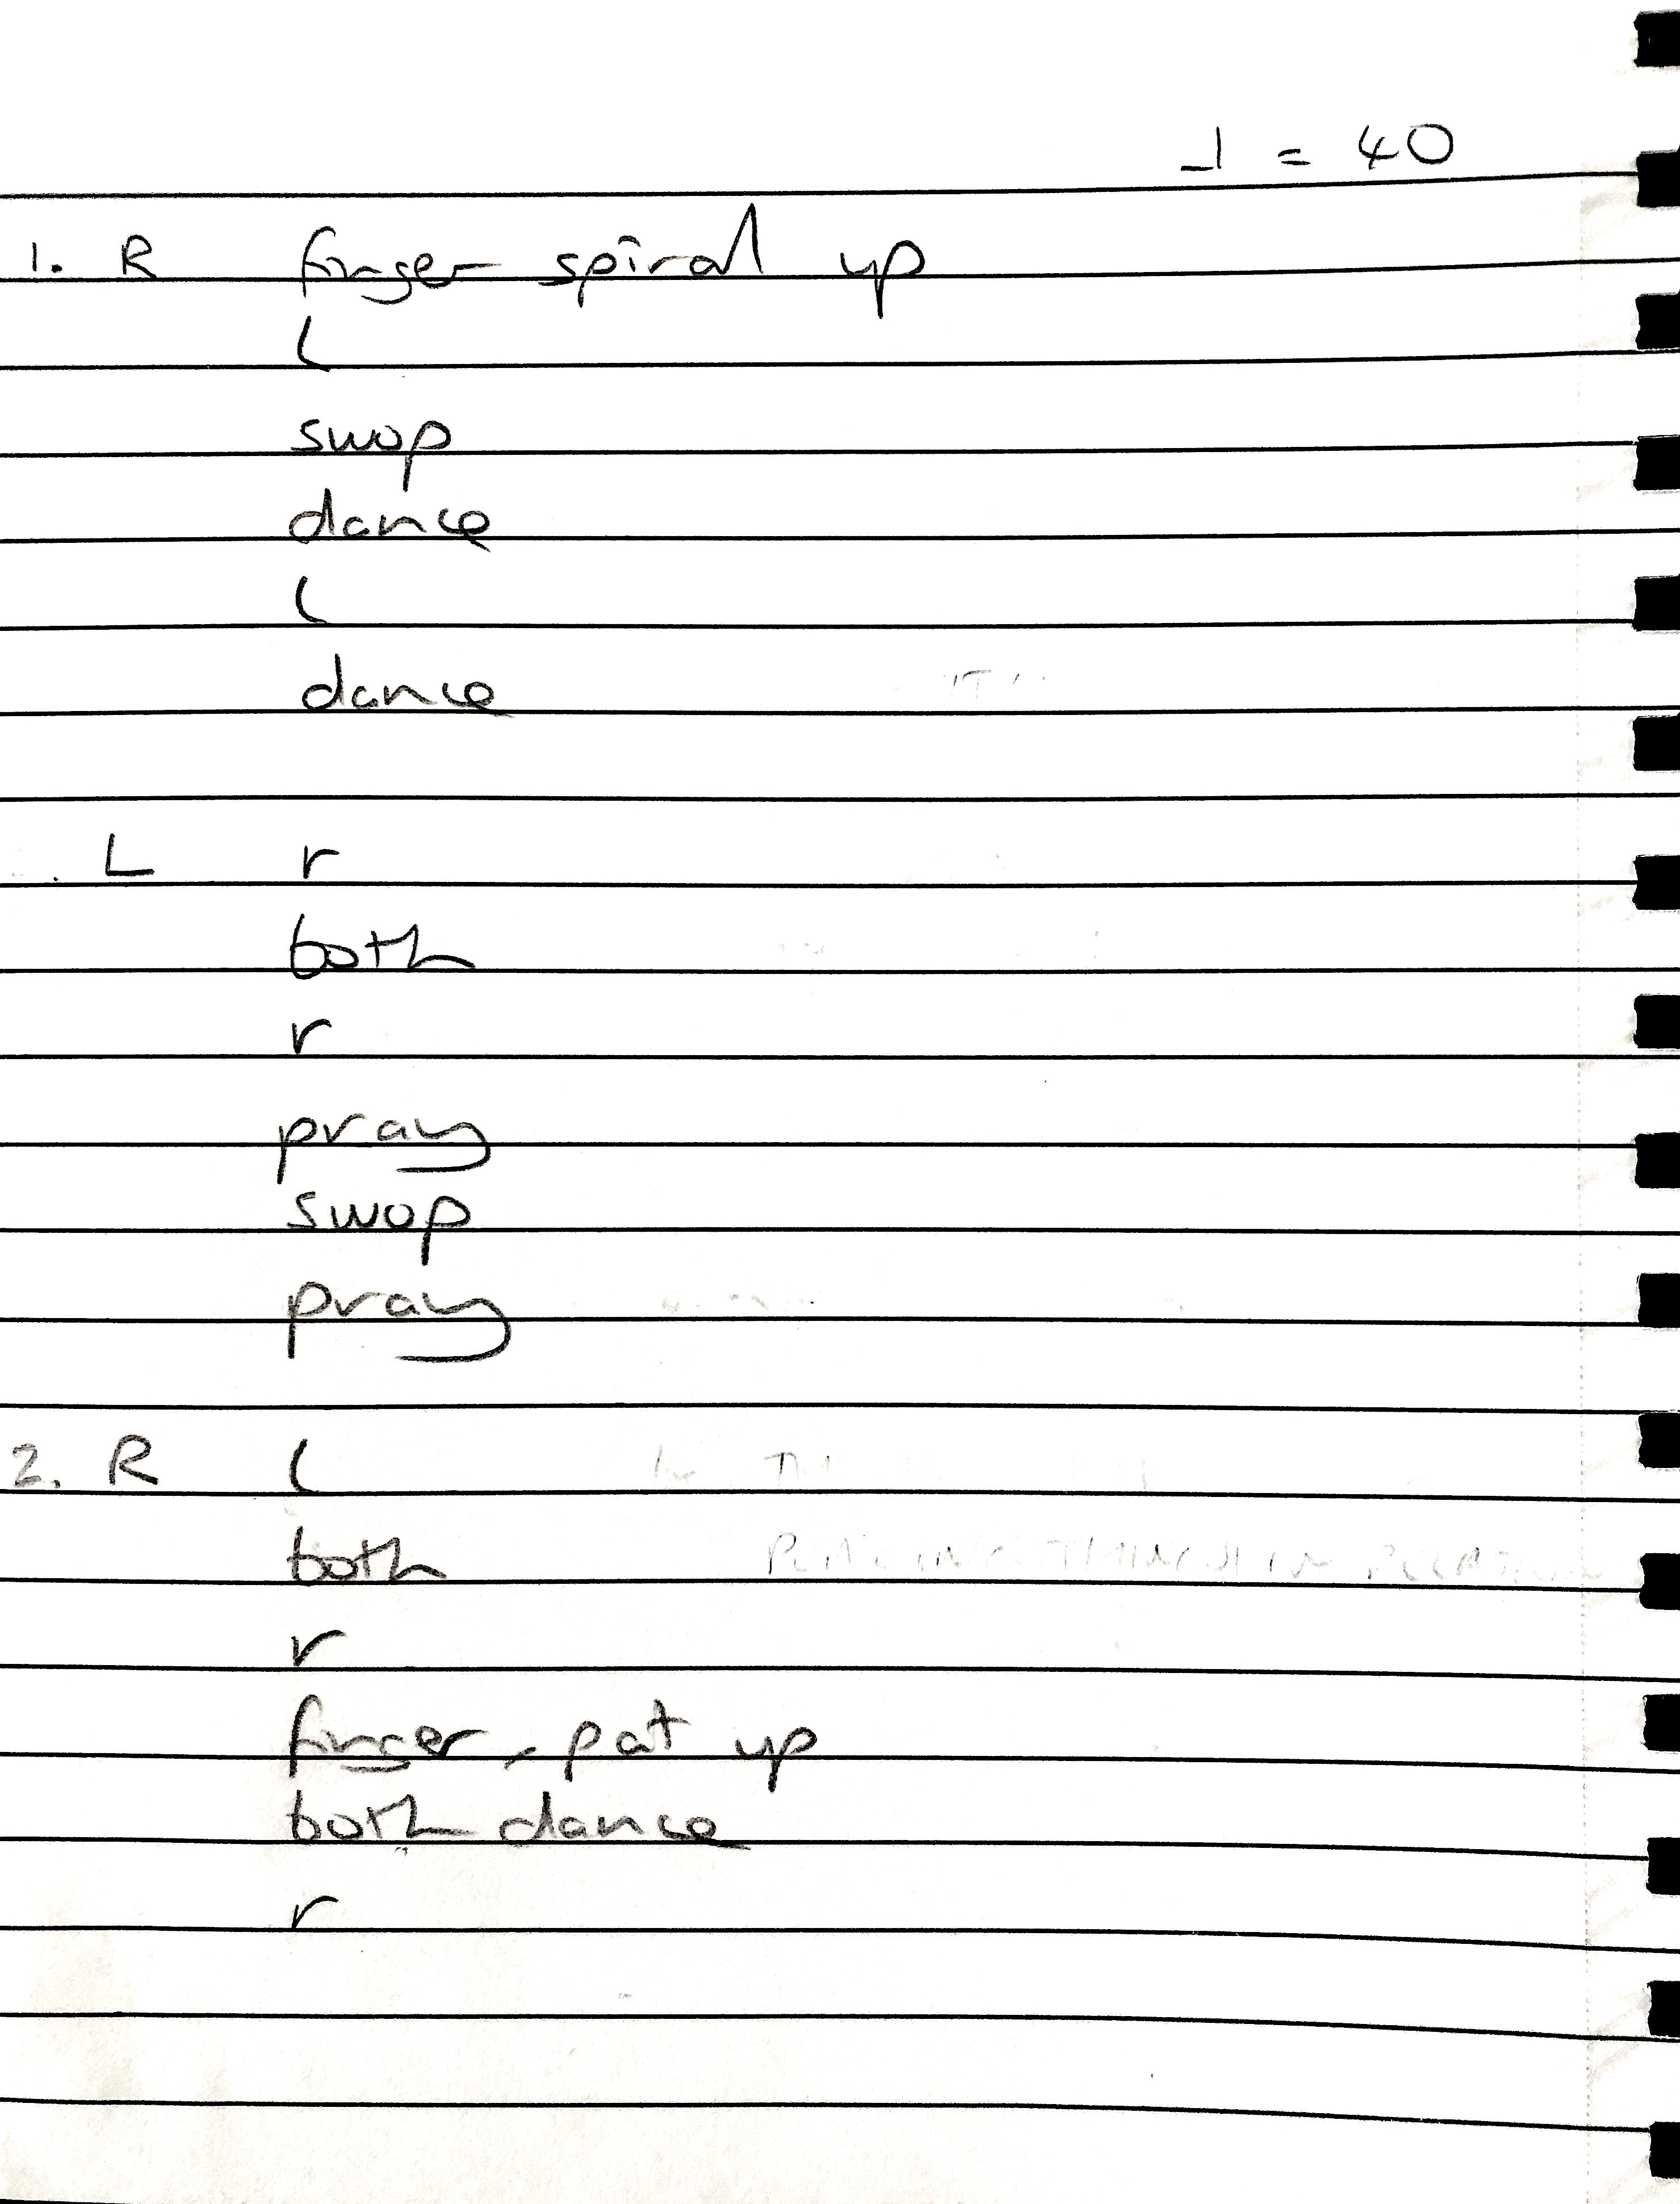 ♩ = 40
1. R finger spiral up
L
swop
dance
L
dance
. L r
both
r
pray
swop
pray
2. R L
both
r
finger - pat up
both dance
r